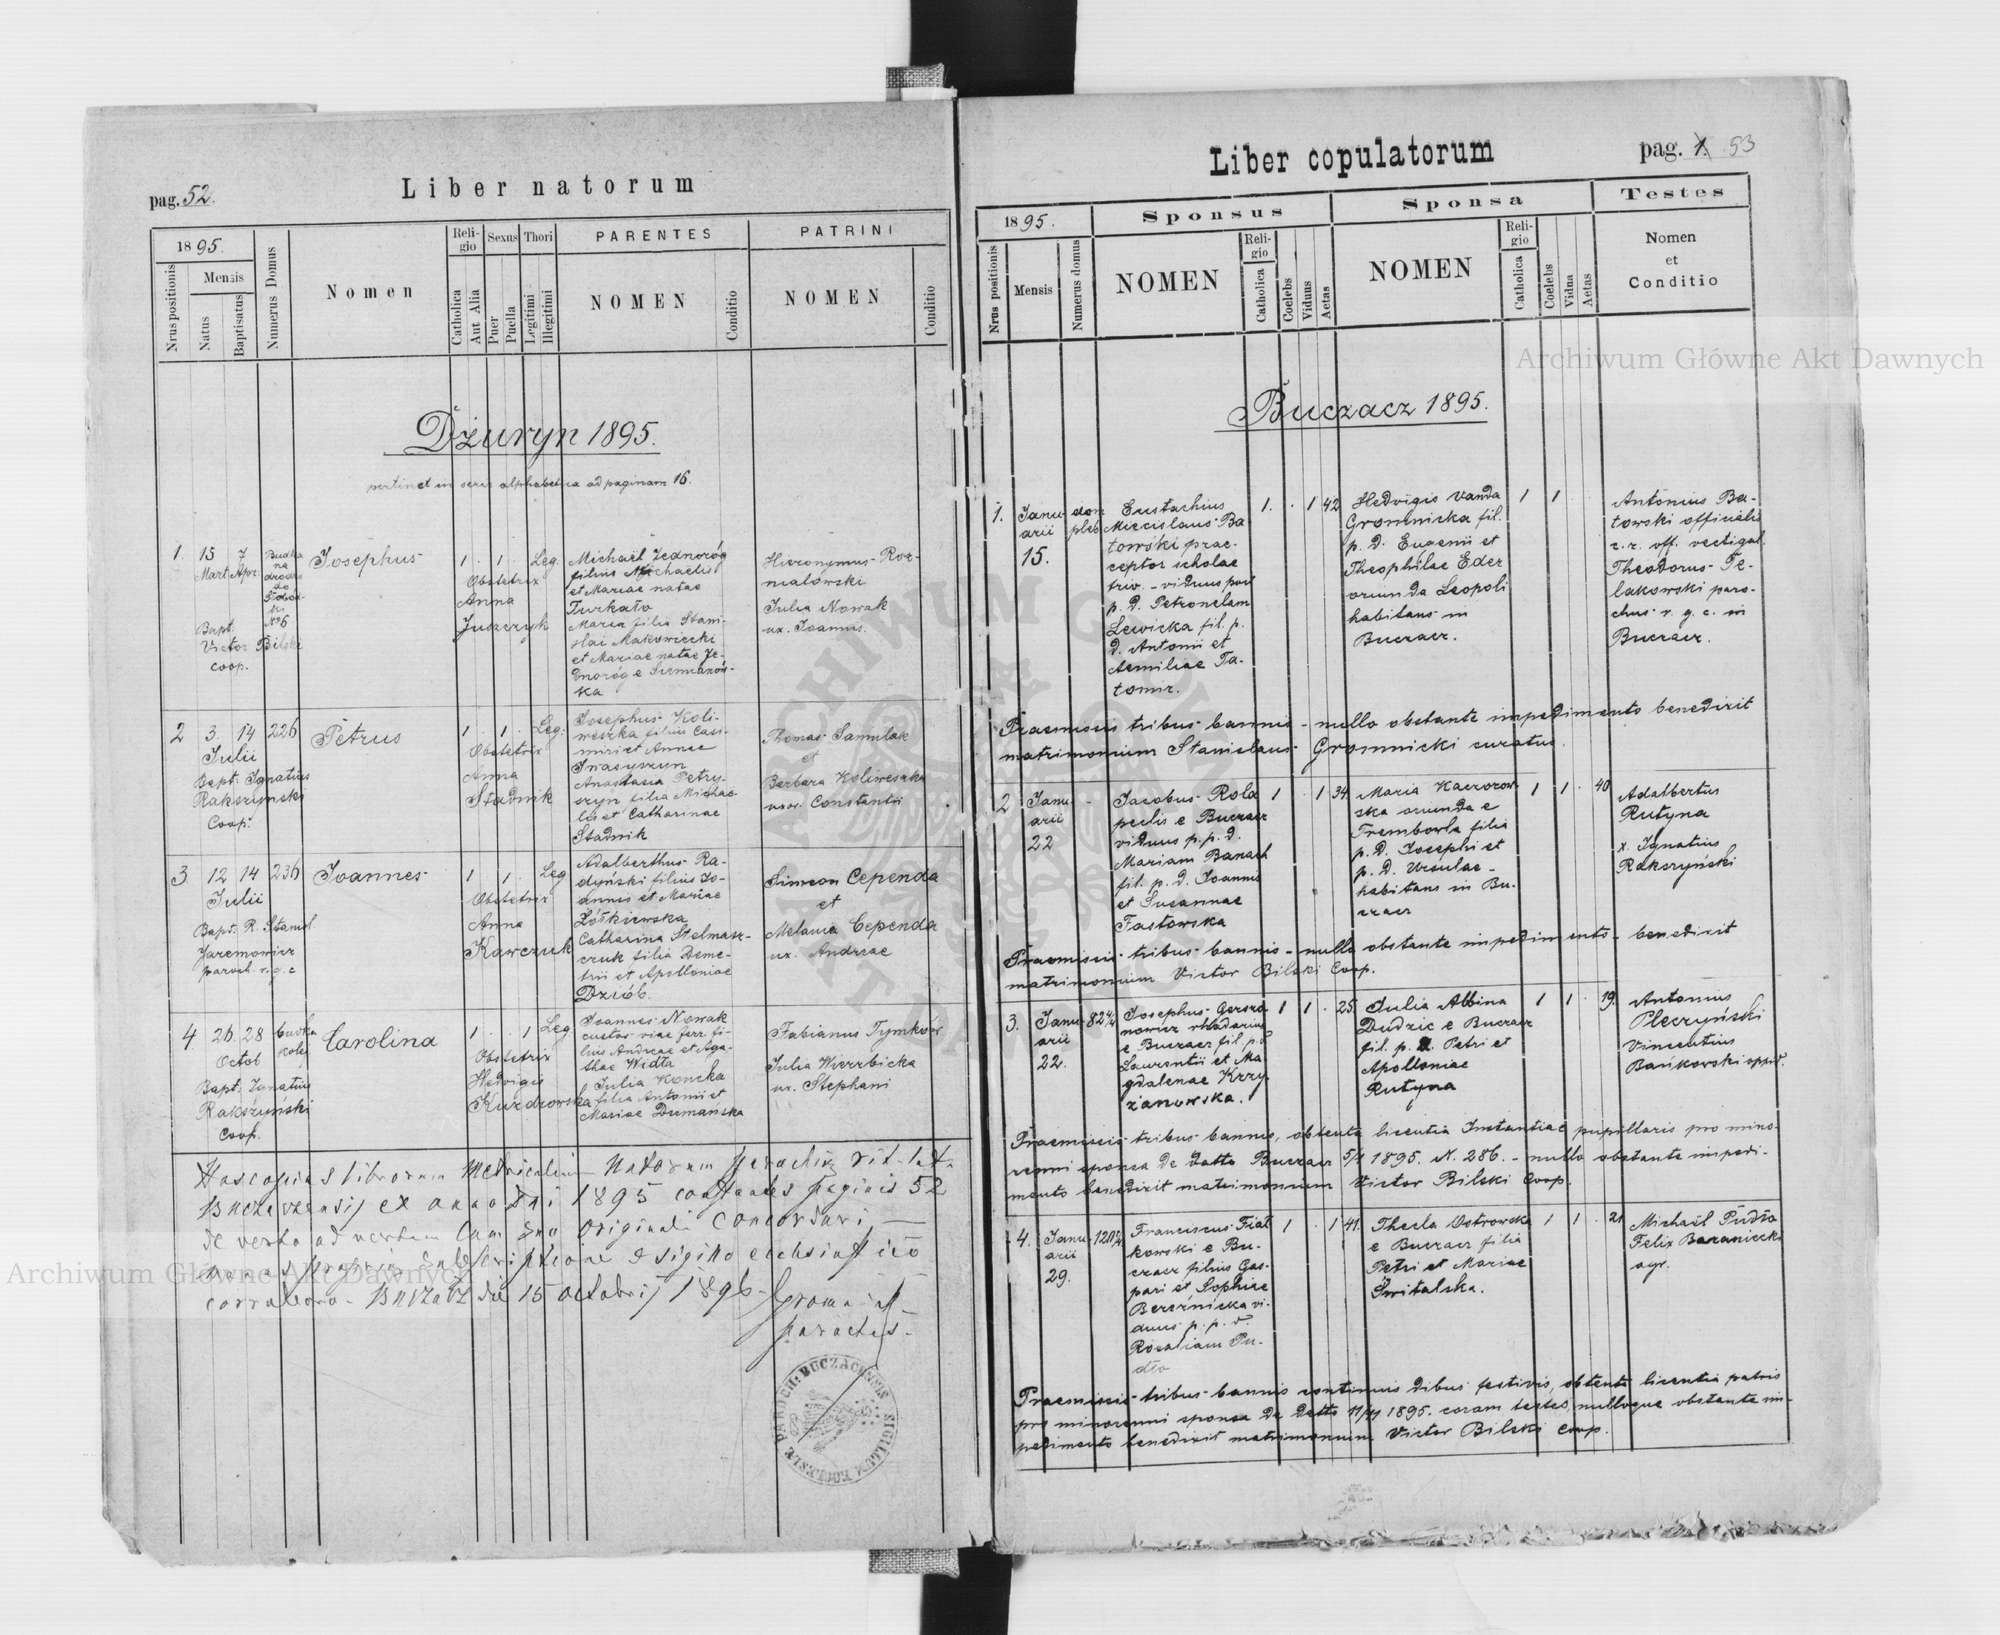 pag. 52.
Liber natorum
1895.
Nrus positionis
Mensis
Natus
Baptisatus
Numerus Domus
Nomen
Religio
Catholica
Aut Alia
Sexus
Puer
Puella
Thori
Legitimi
Illegitimi
PARENTES
NOMEN
Conditio
PATRINI
NOMEN
Conditio
Dżuryn 1895.
pertinet in serie alphabetica ad paginam 16.
1.
15 7
Mart. Apr.
Budka
na
drodze
do
N° 6
Bapt.
Victor Bilski
coop.
Josephus
1. 1. Leg.
Obstetrix
Anna
Juszczyk
Michael Jednoróg
filius Michaelis
et Mariae natae
Turkało
Maria filia Stani-
slai Makowiecki
et Mariae natae Je-
dnoróg e
ka
Hieronymus Roz-
niatowski
Julia Nowak
ux. Joannis.
2
3. 14
226
Julii
Bapt. Ignatius
Rakszynski
Coop.
Petrus
1. 1. Leg.
Obstetrix
Anna
Stadnik
Josephus Koli-
weszka filius Casi-
miri et Annae
Anastasia Petry-
szyn filia Michae-
lis et Catharinae
Stadnik
Thomas Samulak
et
Barbara Koliweszka
uxor Constantii
3
12 14
236
Julii
Bapt. R. Stanisl.
Jaremowicz
paroch. r. g. c
Joannes
1 1. Leg
Obstetrix
Anna
Kawczuk
Adalberthus Ra-
dyński filius Jo-
annis et Mariae
Żółkiewska
Catharina Stelmasz-
czuk filia Deme-
trii et Apolloniae
Dziób.
Simeon Cependa
et
Melania Cependa
ux. Andreae
4
26 28
Octob
Budka
kolej
Bapt. Ignatius
Rakszyński
Coop.
Carolina
1. 1 Leg
Obstetrix
Hedvigis
Kuzdrowska
Joannes Nowak
custos viae ferr. fi-
lius Andreae et Aga-
thae Widła
Julia Koncka
filia Antonii et
Mariae Dumańska
Fabianus Tymków
Julia Wierzbicka
ux. Stephani
Has copias librorum Metricalium Natorum parochiae rit. lat.
Buczacensij ex anno Dni 1895 constantes paginis 52
de verbo ad verbum cum suo originali concordari,
manus propriae subscriptione & sigillo ecclesiastico
corroboro. Buczacz die 15 octobrij 1896
Gromnicki
parochus.
SIGILLUM ECCLESIAE PAROCH: BUCZACENSIS
Liber copulatorum
pag. 1. 53
1895.
Nrus positionis
Mensis
Numerus domus
Sponsus
NOMEN
Religio
Catholica
Coelebs
Viduus
Aetas
Sponsa
NOMEN
Religio
Catholica
Coelebs
Vidua
Aetas
Testes
Nomen
et
Conditio
Buczacz 1895.
1.
Janu-
arii
15.
dom
pleb
Eustachius
Miecislaus Ba
towski prae-
ceptor scholae
triv. - viduus post
p. D. Petronelam
Lewicka fil. p.
D. Antonii et
Aemiliae Ta-
tomir.
1. 1 42
Hedvigis Vanda
Gromnicka fil.
p. D. Eugenii et
Theophilae Eder
oriunda Leopoli
habitans in
Buczacz.
1 1
Antonius Ba-
towski officialis
c. r. off. vectigal.
Theodorus Te-
lakowski paro-
chus r. g. c. in
Buczacz.
Praemissis tribus bannis - nullo obstante impedimento benedixit
matrimonium Stanislaus Gromnicki curatus.
2
Janu-
arii
22
-
Jacobus Rola
pelis e Buczacz
viduus p. p. d.
Mariam Banach
fil. p. d. Joannis
et Susannae
Fastowska
1 1 34
Maria Kaczorow-
ska oriunda e
Trembowla filia
p. D. Josephi et
p. D. Ursulae -
habitans in Bu-
czacz
1 1 40
Adalbertus
Rutyna
x. Ignatius
Rakszyński
Praemissis tribus bannis - nullo obstante impedimento - benedixit
matrimonium Victor Bilski Coop.
3.
Janu-
arii
22.
Josephus Gerszo
nowicz rhedarius
e Buczacz fil. p. d
Laurentii et Ma-
gdalenae Krzy-
żanowska.
1 1. 25.
Julia Albina
Dudzic e Buczacz
fil. p. d. Petri et
Apolloniae
Rutyna
1 1. 19.
Antonius
Pleczyński
Vincentius
Bańkowski oppid.
Praemissis tribus bannis, obtenta licentia Instantiae pupillaris pro mino-
renni sponsa de datto Buczacz 5/1 1895. N. 286. - nullo obstante impedi-
mento benedixit matrimonium Victor Bilski Coop.
4.
Janu-
arii
29.
Franciscus Fiał
kowski e Bu-
czacz filius Gas-
pari et Sophiae
Bereźnicka vi-
duus p. p. d.
Rozaliam Pu-
dło
1 1 41.
Thecla Ostrowska
e Buczacz filia
Petri et Mariae
Świtalska.
1 1 21
Michaël Pudło
Felix Baraniecki
agr.
Praemissis tribus bannis continuis dibus festivis, obtenta licentia patris
pro minorenni sponsa de datto 11/1 1895. coram testes, nulloque obstante im-
pedimento benedixit matrimonium Victor Bilski Coop.
Archiwum Główne Akt Dawnych
Archiwum Główne Akt Dawnych